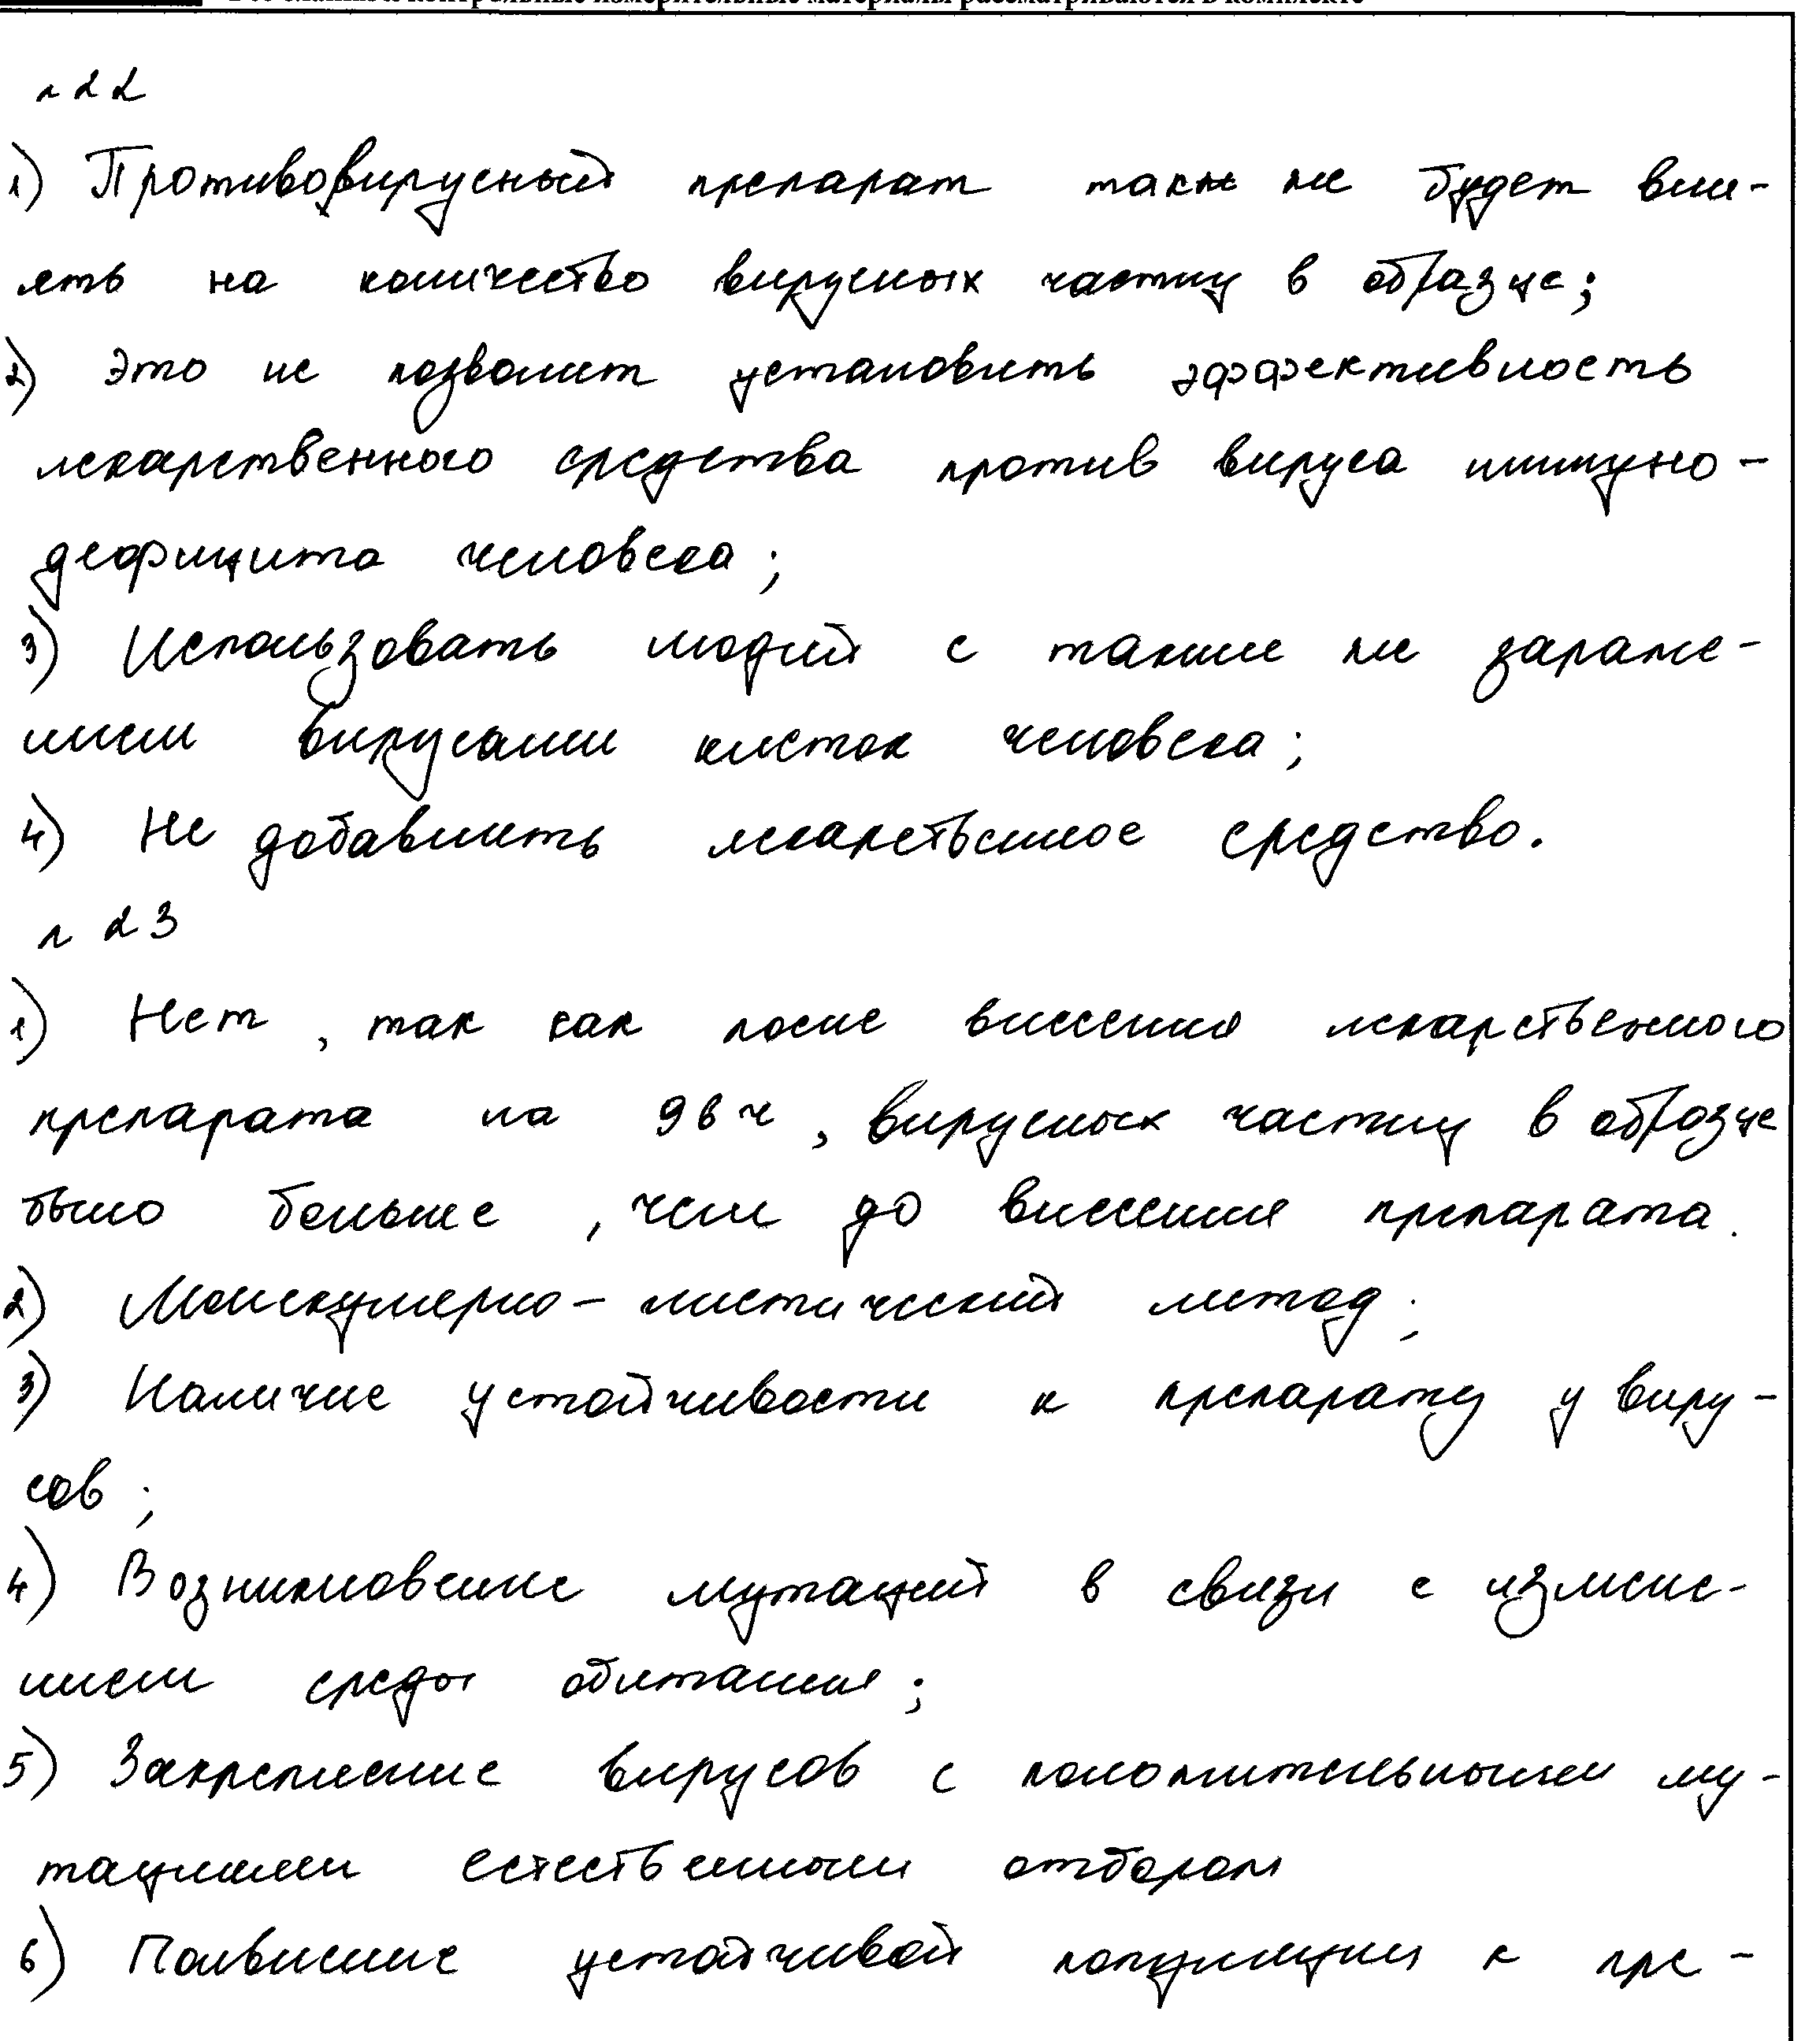 № 22
1) Противовирусный препарат также не будет вли-
ять на количество вирусных частиц в образце;
2) Это не позволит установить эффективность
лекарственного средства против вируса иммуно-
дефицита человека;
3) Использовать людей с такими же зараже-
нием вирусами клеток человека;
4) Не добавлять лекарственное средство.
№ 23
1) Нет, так как после внесения лекарственного
препарата на 96 ч, вирусных частиц в образце
было больше, чем до внесения препарата.
2) Молекулярно-генетический метод;
3) Наличие устойчивости к препарату у виру-
сов;
4) Возникновение мутаций в связи с измене-
нием среды обитания;
5) Закрепление вирусов с положительными му-
тациями естественным отбором
6) Появление устойчивой популяции к пре-